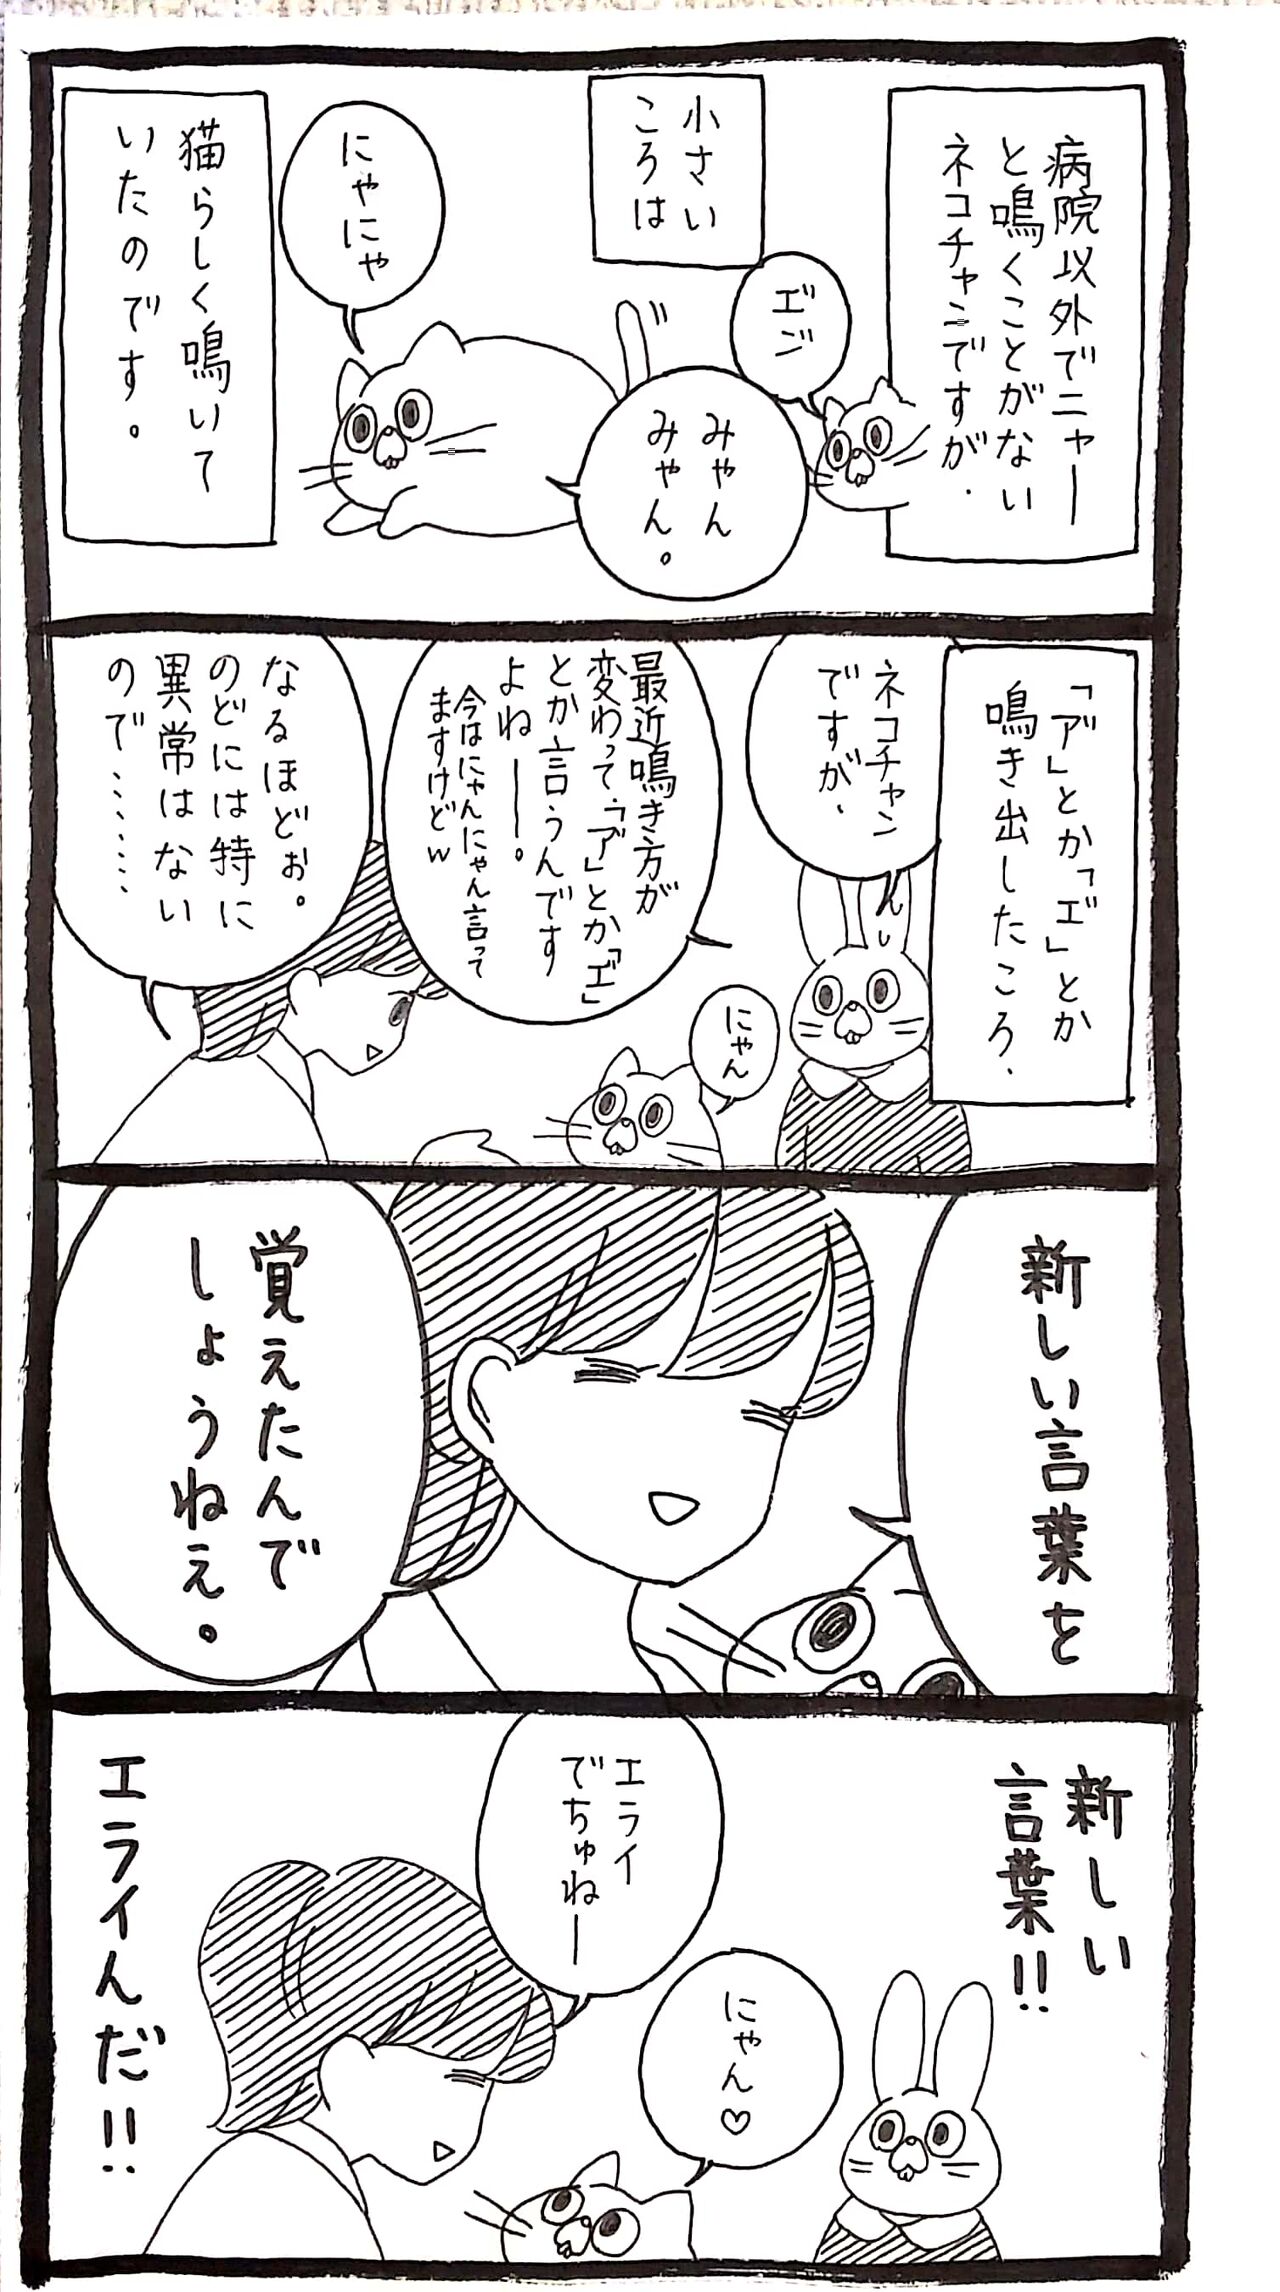 病院以外でニャー
と鳴くことがない
ネコチャンですが、
エ゛ン゛
小さい
ころは
みゃん
みゃん。
にゃにゃ
猫らしく鳴いて
いたのです。
「ア゛」とか「エ゛」とか
鳴き出したころ、
ネコチャン
ですが、
ん
最近鳴き方が
変わって「ア゛」とか「エ゛」
とか言うんです
よねー。
今はにゃんにゃん言って
ますけどw
にゃん
なるほどぉ。
のどには特に
異常はない
ので……
新しい言葉を
覚えたんで
しょうねぇ。
新しい
言葉!!
にゃん♡
エライ
でちゅねー
エライんだ!!